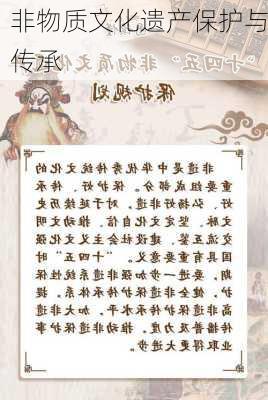 非物质文化遗产保护与
传承
“十四五”非物质文化
保护规划
非遗是中华优秀传统文化的
重要组成部分。保护好、传承
好、弘扬好非遗，对于延续历史
文脉、坚定文化自信、推动文明
交流互鉴、建设社会主义文化强
国具有重要意义。“十四五”时
期，要进一步加强非遗系统性保
护，健全非遗保护传承体系，提
高非遗保护传承水平，加大非遗
传播普及力度，推动非遗保护事
业取得更大进步。